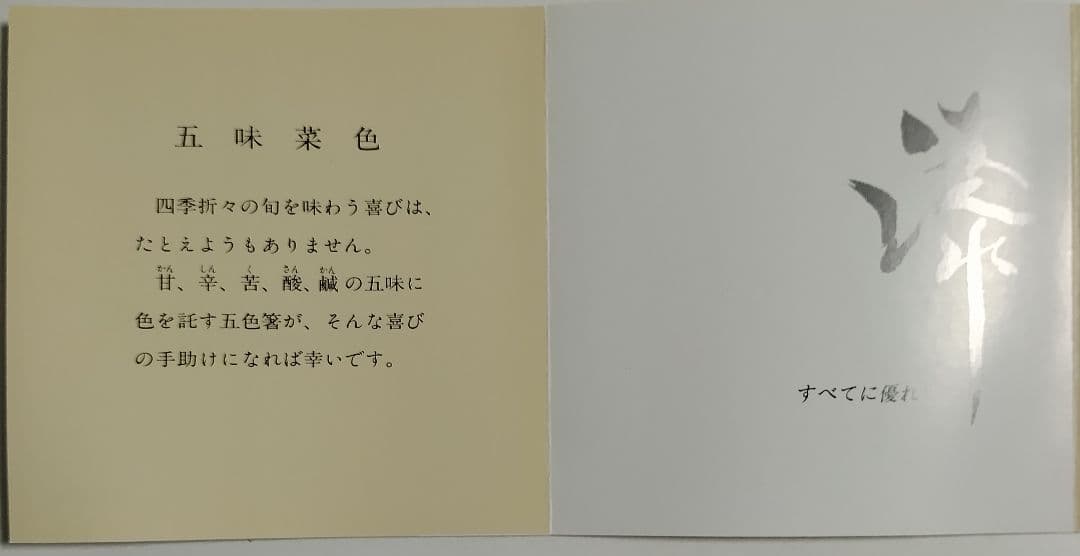 五味菜色
四季折々の旬を味わう喜びは、
たとえようもありません。
甘、辛、苦、酸、鹹の五味に
かん しん く さん かん
色を託す五色箸が、そんな喜び
の手助けになれば幸いです。
すべてに優れ